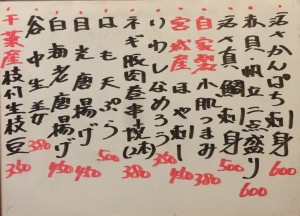 活かんぱち刺身 600
赤貝・帆立二点盛り 600
活〆真鯛刺身 500
自家製小肌つまみ 380
宮城産ほや刺し 450
いわしなめろう 350
ネギ豚肉巻串焼(2本) 380
はも天ぷら 500
目光唐揚げ 450
白海老唐揚げ 450
谷中生姜 380
千葉産枝付生枝豆 350